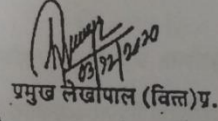 03/12/2020
प्रमुख लेखापाल (वित्त)प्र.